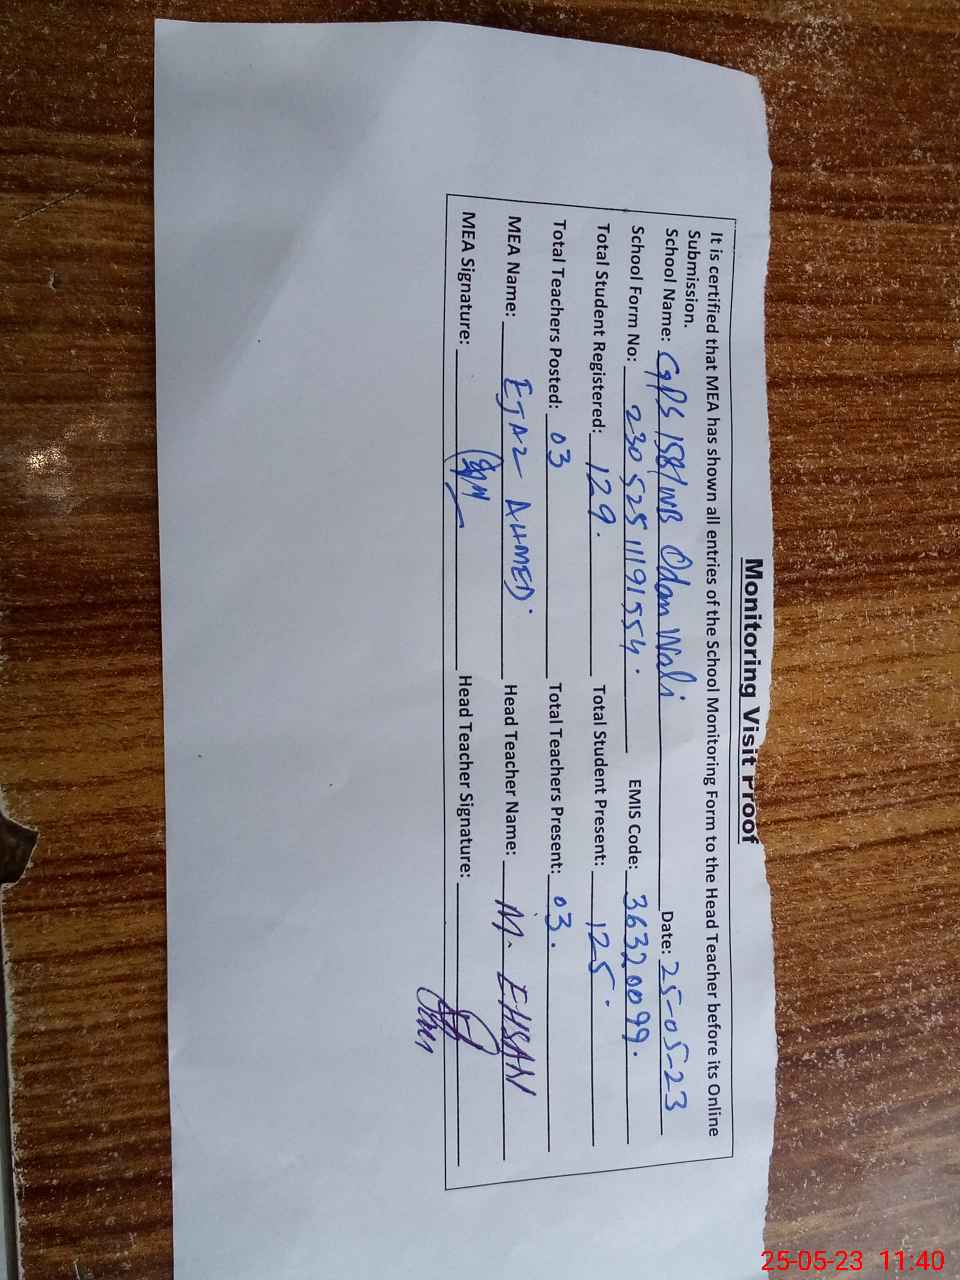 Monitoring Visit Proof
It is certified that MEA has shown all entries of the School Monitoring Form to the Head Teacher before its Online
Submission.
School Name: GPS 158/WB Odan Wali Date: 25-05-23
School Form No: 23052511191554. EMIS Code: 36320099.
Total Student Registered: 129. Total Student Present: 125.
Total Teachers Posted: 03 Total Teachers Present: 03.
MEA Name: EJAZ AHMED. Head Teacher Name: M. EHSAN
MEA Signature: Head Teacher Signature:
25-05-23 11:40